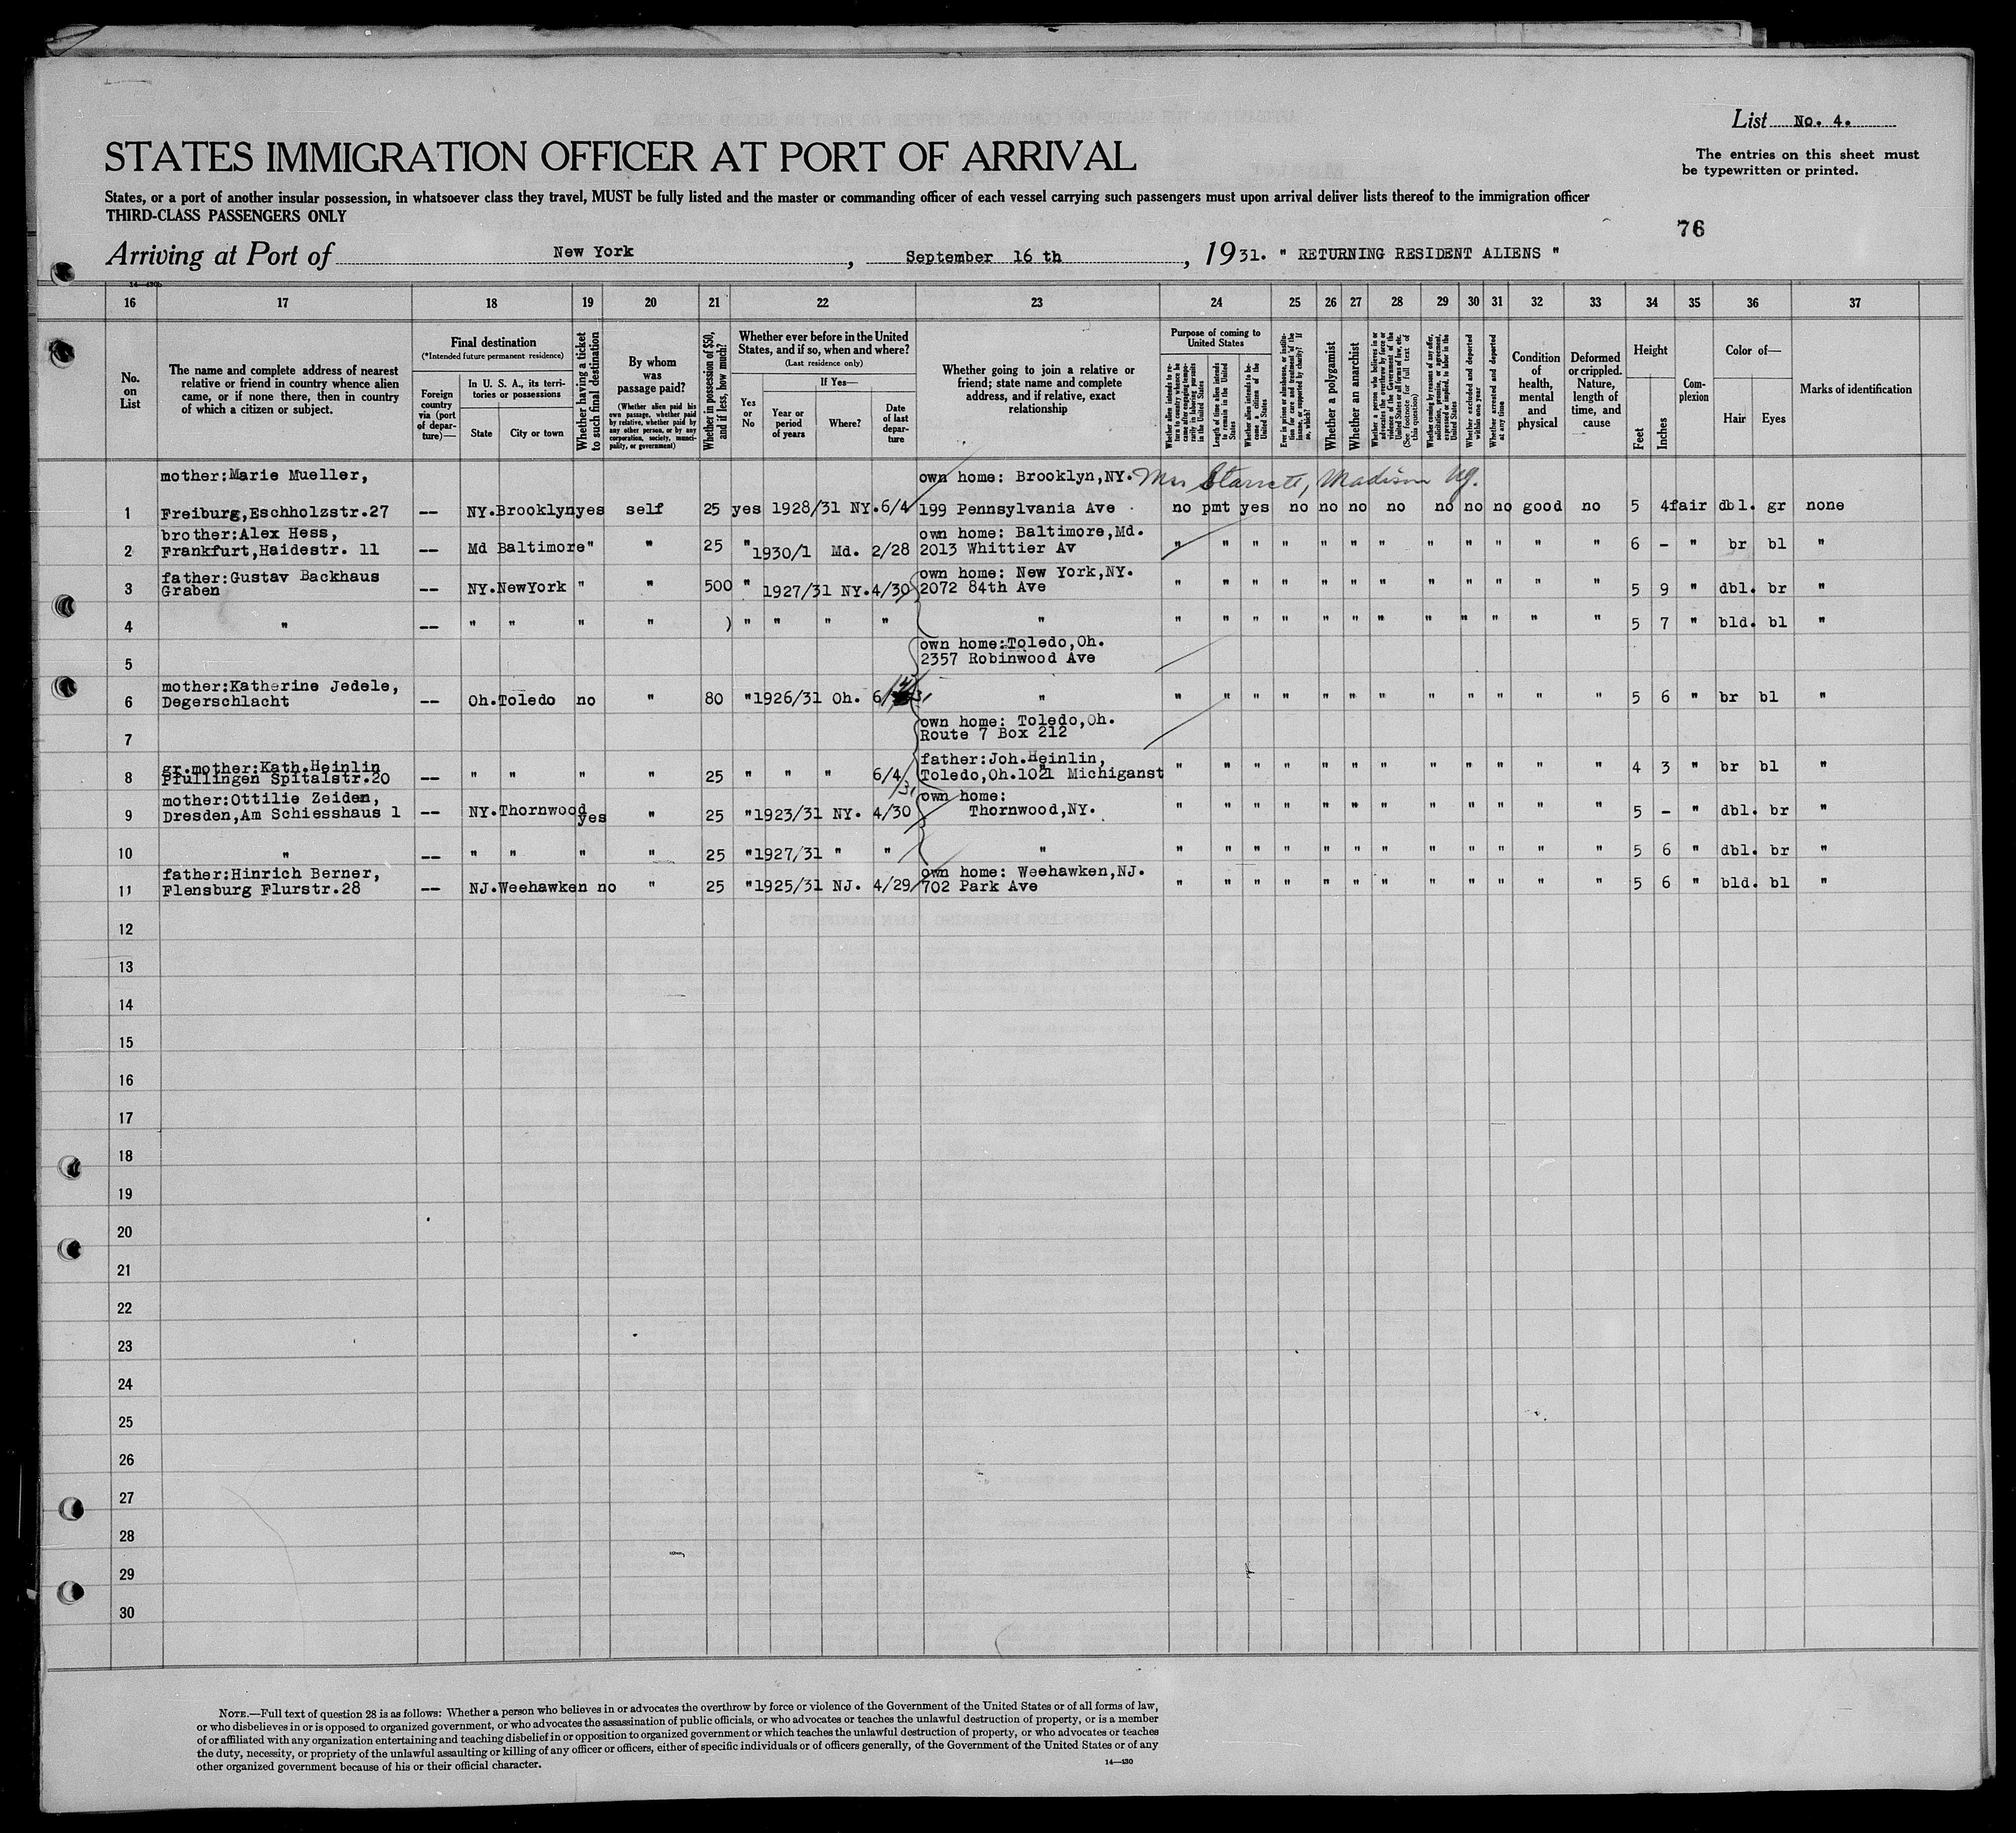 List No. 4.
STATES IMMIGRATION OFFICER AT PORT OF ARRIVAL
The entries on this sheet must
be typewritten or printed.
States, or a port of another insular possession, in whatsoever class they travel, MUST be fully listed and the master or commanding officer of each vessel carrying such passengers must upon arrival deliver lists thereof to the immigration officer
THIRD-CLASS PASSENGERS ONLY
76
Arriving at Port of New York, September 16 th, 1931. " RETURNING RESIDENT ALIENS "
16 17 18 19 20 21 22 23 24 25 26 27 28 29 30 31 32 33 34 35 36 37
No. on List
The name and complete address of nearest relative or friend in country whence alien came, or if none there, then in country of which a citizen or subject.
Final destination
(*Intended future permanent residence)
Foreign country via (port of departure)—
In U. S. A., its territories or possessions
State
City or town
Whether having a ticket to such final destination
By whom was passage paid?
(Whether alien paid his own passage, whether paid by relative, whether paid by any other person, or by any corporation, society, municipality, or government)
Whether in possession of $50, and if less, how much?
Whether ever before in the United States, and if so, when and where?
(Last residence only)
Yes or No
If Yes—
Year or period of years
Where?
Date of last departure
Whether going to join a relative or friend; state name and complete address, and if relative, exact relationship
Purpose of coming to United States
Whether alien intends to return to country whence he came after engaging temporarily in laboring pursuits in the United States
Length of time alien intends to remain in the United States
Whether alien intends to become a citizen of the United States
Ever in prison or almshouse, or institution for care and treatment of the insane, or supported by charity? If so, which?
Whether a polygamist
Whether an anarchist
Whether a person who believes in or advocates the overthrow by force or violence of the Government of the United States or all forms of law, etc. (See footnote for full text of this question)
Whether coming by reason of any offer, solicitation, promise, or agreement, expressed or implied, to labor in the United States
Whether excluded and deported within one year
Whether arrested and deported at any time
Condition of health, mental and physical
Deformed or crippled. Nature, length of time, and cause
Height
Feet
Inches
Complexion
Color of—
Hair
Eyes
Marks of identification
mother:Marie Mueller, own home: Brooklyn,NY. Mrs Starrett, Madison
1 Freiburg,Eschholzstr.27 -- NY.Brooklyn yes self 25 yes 1928/31 NY. 6/4 199 Pennsylvania Ave no pmt yes no no no no no no no good no 5 4 fair dbl. gr none
brother:Alex Hess, own home: Baltimore,Md.
2 Frankfurt,Haidestr. 11 -- Md Baltimore " " 25 " 1930/1 Md. 2/28 2013 Whittier Av " " " " " " " " " " " " 6 - " br bl "
father:Gustav Backhaus own home: New York,NY.
3 Graben -- NY.NewYork " " 500 " 1927/31 NY. 4/30 2072 84th Ave " " " " " " " " " " " " 5 9 " dbl. br "
4 " -- " " " " ) " " " " " " " " " " " " " " " " " " 5 7 " bld. bl "
own home:Toledo,Oh.
5 2357 Robinwood Ave
mother:Katherine Jedele,
6 Degerschlacht -- Oh.Toledo no " 80 " 1926/31 Oh. 6/ 31 " " " " " " " " " " " " " 5 6 " br bl "
own home: Toledo,Oh.
7 Route 7 Box 212
gr.mother:Kath.Heinlin father:Joh.Heinlin,
8 Pfullingen Spitalstr.20 -- " " " " 25 " " " 6/4/31 Toledo,Oh.1021 Michiganst " " " " " " " " " " " " 4 3 " br bl "
mother:Ottilie Zeiden, own home:
9 Dresden,Am Schiesshaus 1 -- NY.Thornwood yes " 25 " 1923/31 NY. 4/30 Thornwood,NY. " " " " " " " " " " " " 5 - " dbl. br "
10 " -- " " " " 25 " 1927/31 " " " " " " " " " " " " " " " 5 6 " dbl. br "
father:Hinrich Berner, own home: Weehawken,NJ.
11 Flensburg Flurstr.28 -- NJ.Weehawken no " 25 " 1925/31 NJ. 4/29 702 Park Ave " " " " " " " " " " " " 5 6 " bld. bl "
12
13
14
15
16
17
18
19
20
21
22
23
24
25
26
27
28
29
30
NOTE.—Full text of question 28 is as follows: Whether a person who believes in or advocates the overthrow by force or violence of the Government of the United States or of all forms of law,
or who disbelieves in or is opposed to organized government, or who advocates the assassination of public officials, or who advocates or teaches the unlawful destruction of property, or is a member
of or affiliated with any organization entertaining and teaching disbelief in or opposition to organized government or which teaches the unlawful destruction of property, or who advocates or teaches
the duty, necessity, or propriety of the unlawful assaulting or killing of any officer or officers, either of specific individuals or of officers generally, of the Government of the United States or of any
other organized government because of his or their official character.
14—430